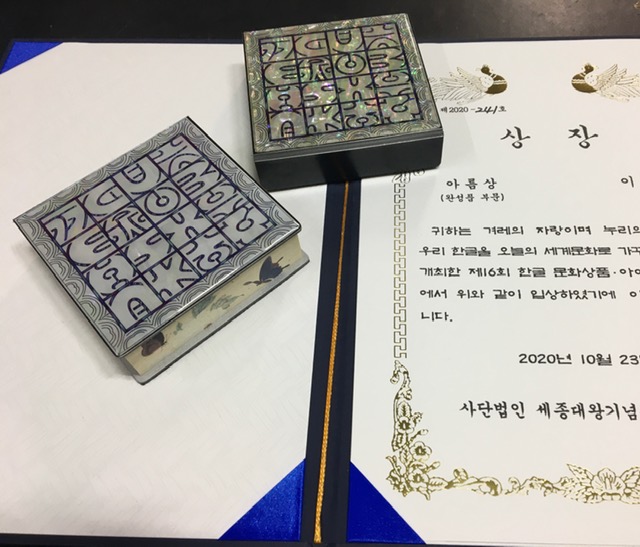 제2020-241호
상 장
아름상
(완성품 부문)
이
귀하는 겨레의 자랑이며 누리의
우리 한글을 오늘의 세계문화로 가꾸
개최한 제16회 한글 문화상품·아이
에서 위와 같이 입상하였기에 이
니다.
2020년 10월 23
사단법인 세종대왕기념